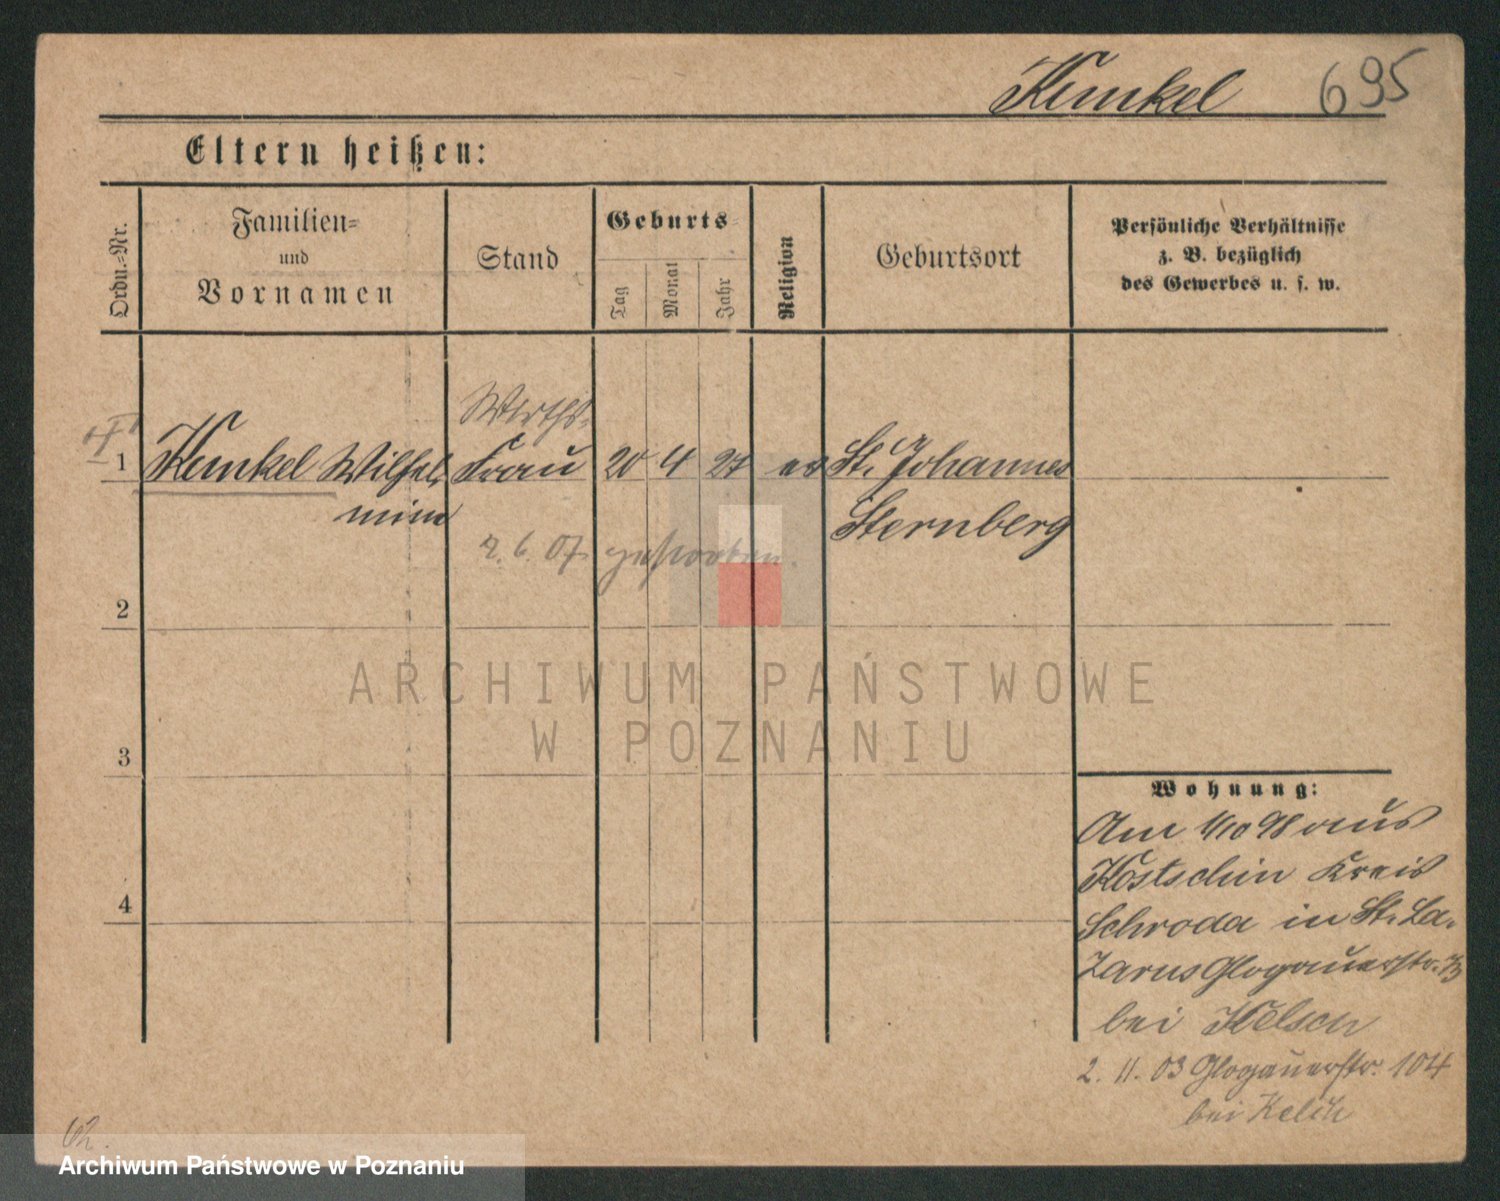 Kunkel 695
Eltern heißen:
Ordn.-Nr.
Familien-
und
Vornamen
Stand
Geburts-
Tag
Monat
Jahr
Religion
Geburtsort
Persönliche Verhältnisse
z. B. bezüglich
des Gewerbes u. s. w.
Wirths-
1 Kunkel Wilhel- Frau 20 4 27 ev St. Johannes
mine Sternberg
2. 6. 07 gestorben.
2
3
4
Wohnung:
Am 1/10 98 aus
Kostschin Kreis
Schroda in St. La-
zarus Glogauerstr.
bei
2. 11. 03 Glogauerstr. 104
bei
ARCHIWUM PAŃSTWOWE
W POZNANIU
Archiwum Państwowe w Poznaniu